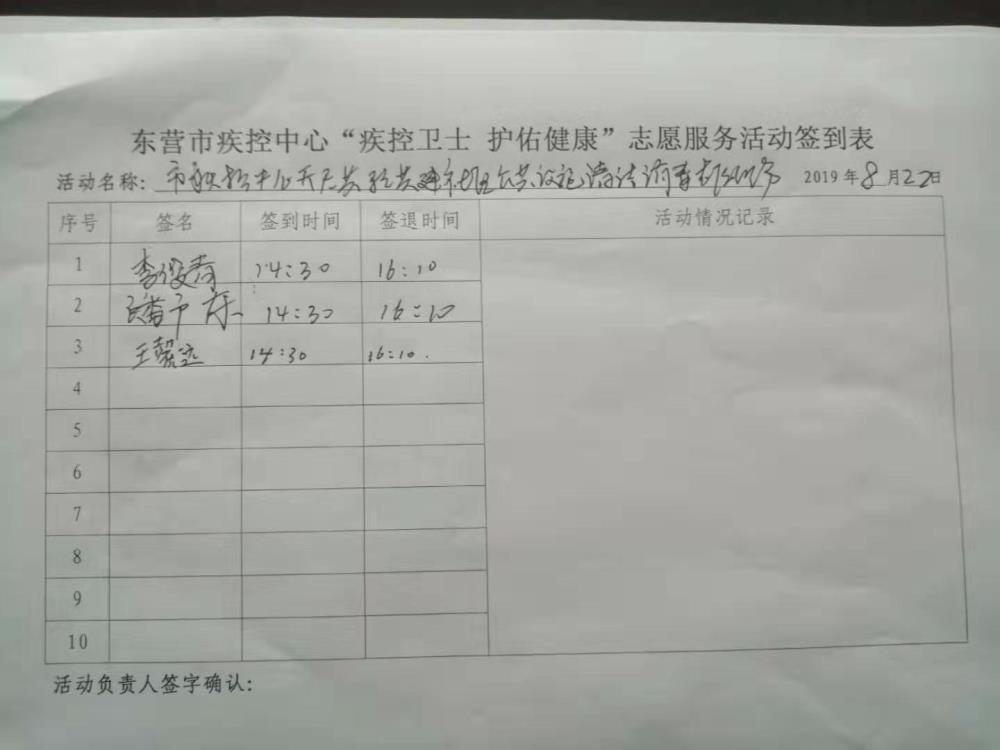 东营市疾控中心“疾控卫士 护佑健康”志愿服务活动签到表
活动名称：市疾控中心开展 2019年8月22日
序号 签名 签到时间 签退时间 活动情况记录
1 李俊 14:30 16:10
2 14:30 16:10
3 王馨 14:30 16:10.
4
5
6
7
8
9
10
活动负责人签字确认：